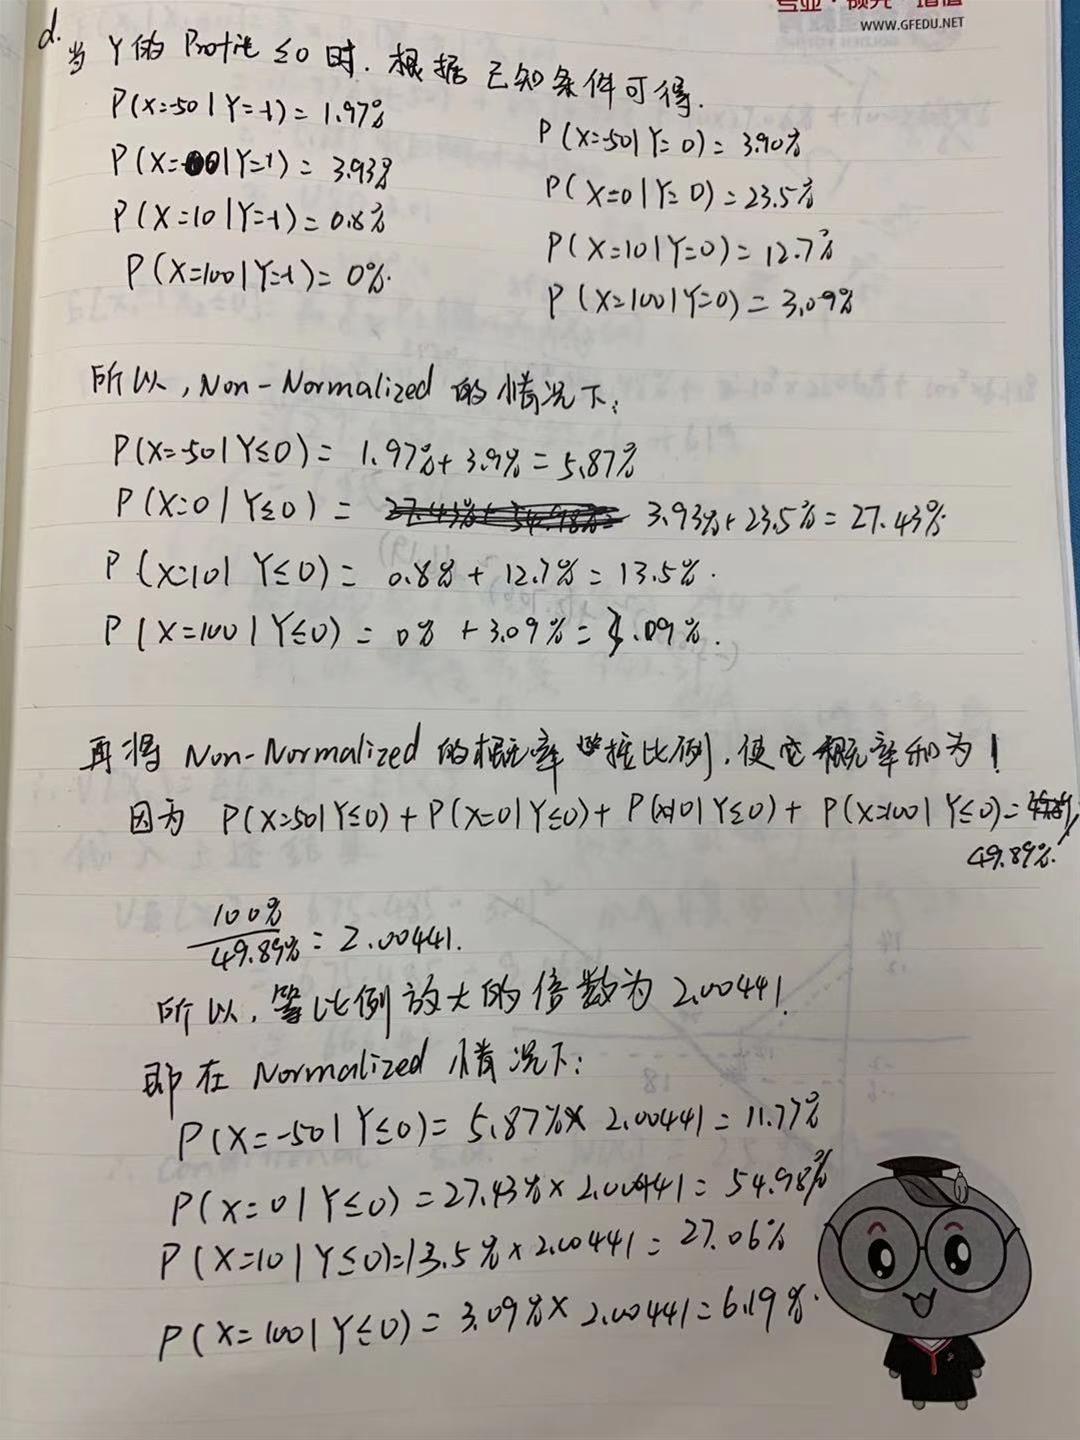 专业·领先·增值
WWW.GFEDU.NET
d.
当 Y的 Profit ≤0 时. 根据 已知条件可得.
P(X=-50|Y=-1) = 1.97%
P(X=-50|Y=0) = 3.90%
P(X=0|Y=-1) = 3.93%
P(X=0|Y=0) = 23.5%
P(X=10|Y=-1) = 0.8%
P(X=10|Y=0) = 12.7%
P(X=100|Y=-1) = 0%.
P(X=100|Y=0) = 3.09%
所以, Non-Normalized 的情况下:
P(X=-50|Y≤0) = 1.97%+3.9% = 5.87%
P(X=0|Y≤0) = 3.93%+23.5% = 27.43%.
P(X=10|Y≤0) = 0.8% + 12.7% = 13.5%.
P(X=100|Y≤0) = 0% + 3.09% = 3.09%.
再将 Non-Normalized 的概率 按比例, 使它概率和为1
因为 P(X=-50|Y≤0) + P(X=0|Y≤0) + P(X=10|Y≤0) + P(X=100|Y≤0) =
49.89%.
100%/49.89% = 2.00441.
所以, 等比例放大的倍数为 2.00441.
即在 Normalized 情况下:
P(X=-50|Y≤0) = 5.87% × 2.00441 = 11.77%
P(X=0|Y≤0) = 27.43% × 2.00441 = 54.98%
P(X=10|Y≤0) = 13.5% × 2.00441 = 27.06%
P(X=100|Y≤0) = 3.09% × 2.00441 = 6.19%.